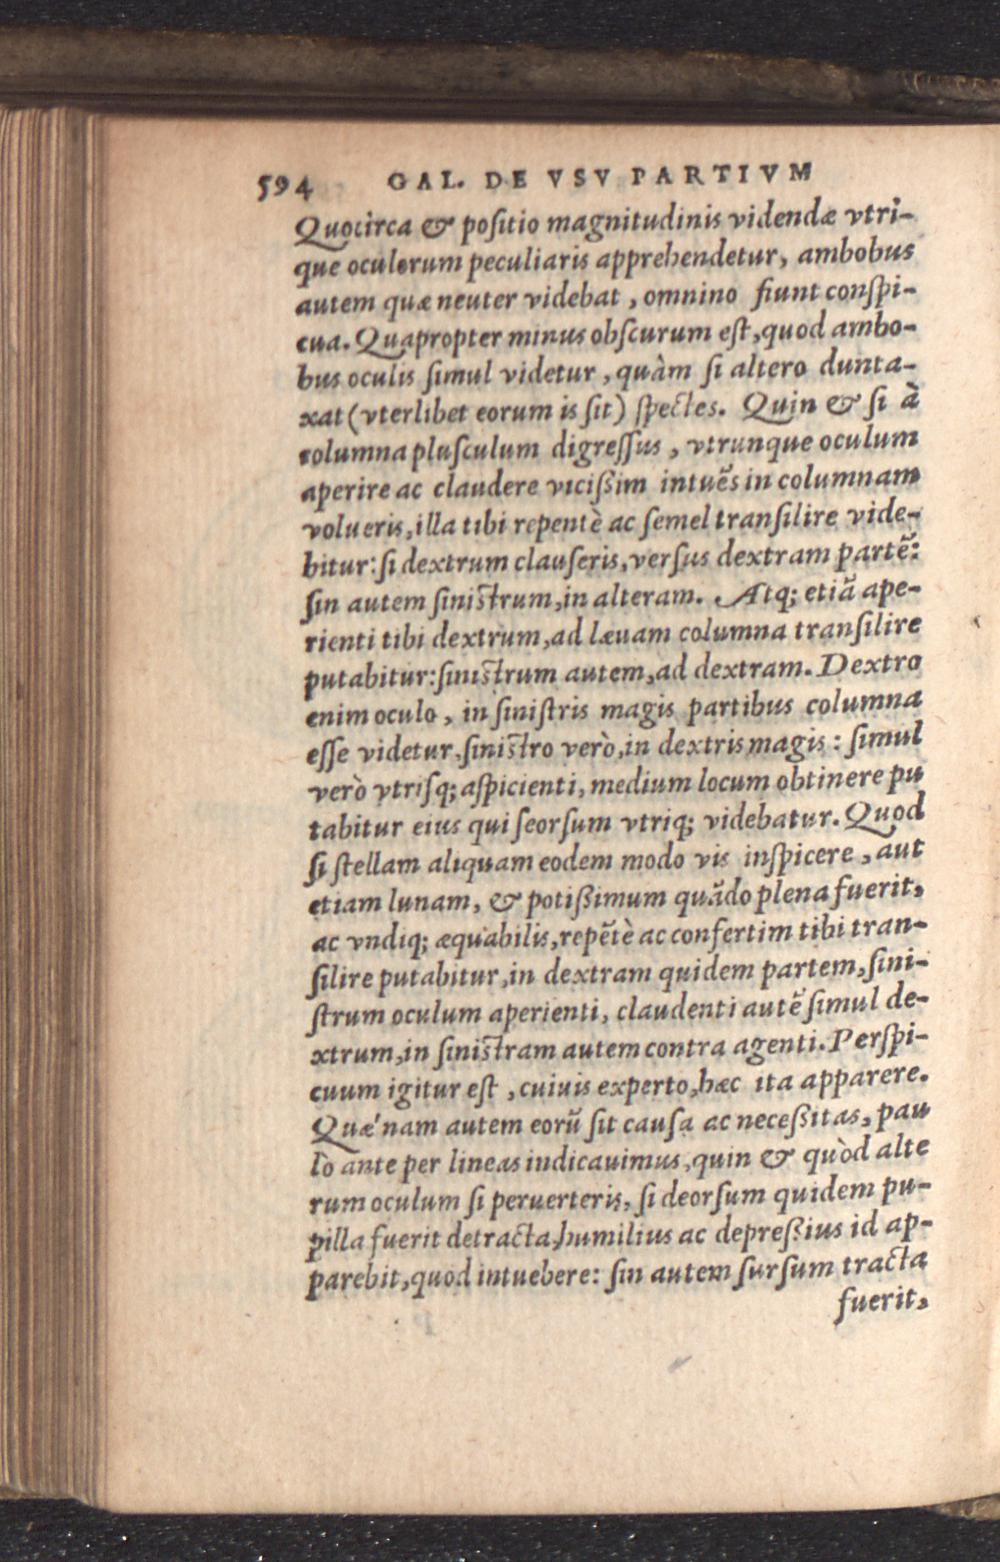 594 GAL. DE VSV PARTIVM
Quocirca & poſitio magnitudinis videndæ vtri-
que oculorum peculiaris apprehendetur, ambobus
autem quæ neuter videbat, omnino fiunt conſpi-
cua. Quapropter minus obſcurum eſt, quod ambo-
bus oculis ſimul videtur, quàm ſi altero dunta-
xat (vterlibet eorum is ſit) ſpectes. Quin & ſi à
columna pluſculum digreſſus, vtrunque oculum
aperire ac claudere viciſſim intuẽs in columnam
volueris, illa tibi repentè ac ſemel tranſilire vide-
bitur: ſi dextrum clauſeris, verſus dextram partẽ:
ſin autem ſiniſtrum, in alteram. Atq; etiã ape-
rienti tibi dextrum, ad læuam columna tranſilire
putabitur: ſiniſtrum autem, ad dextram. Dextro
enim oculo, in ſiniſtris magis partibus columna
eſſe videtur, ſiniſtro verò, in dextris magis: ſimul
verò vtriſq; aſpicienti, medium locum obtinere pu
tabitur eius qui ſeorſum vtriq; videbatur. Quod
ſi ſtellam aliquam eodem modo vis inſpicere, aut
etiam lunam, & potiſſimum quãdo plena fuerit,
ac vndiq; æquabilis, repẽtè ac confertim tibi tran-
ſilire putabitur, in dextram quidem partem, ſini-
ſtrum oculum aperienti, claudenti autẽ ſimul de-
xtrum, in ſiniſtram autem contra agenti. Perſpi-
cuum igitur eſt, cuiuis experto, hæc ita apparere.
Quæ'nam autem eorũ ſit cauſa ac neceſſitas, pau
lò ante per lineas indicauimus, quin & quòd alte
rum oculum ſi peruerteris, ſi deorſum quidem pu-
pilla fuerit detracta, humilius ac depreſſius id ap-
parebit, quod intuebere: ſin autem ſurſum tracta
fuerit,